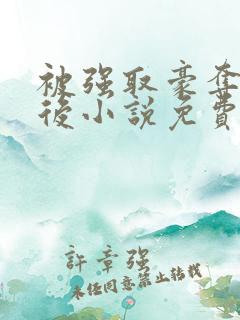 被强取豪夺
後小說免費
許章强
未经同意禁止转载